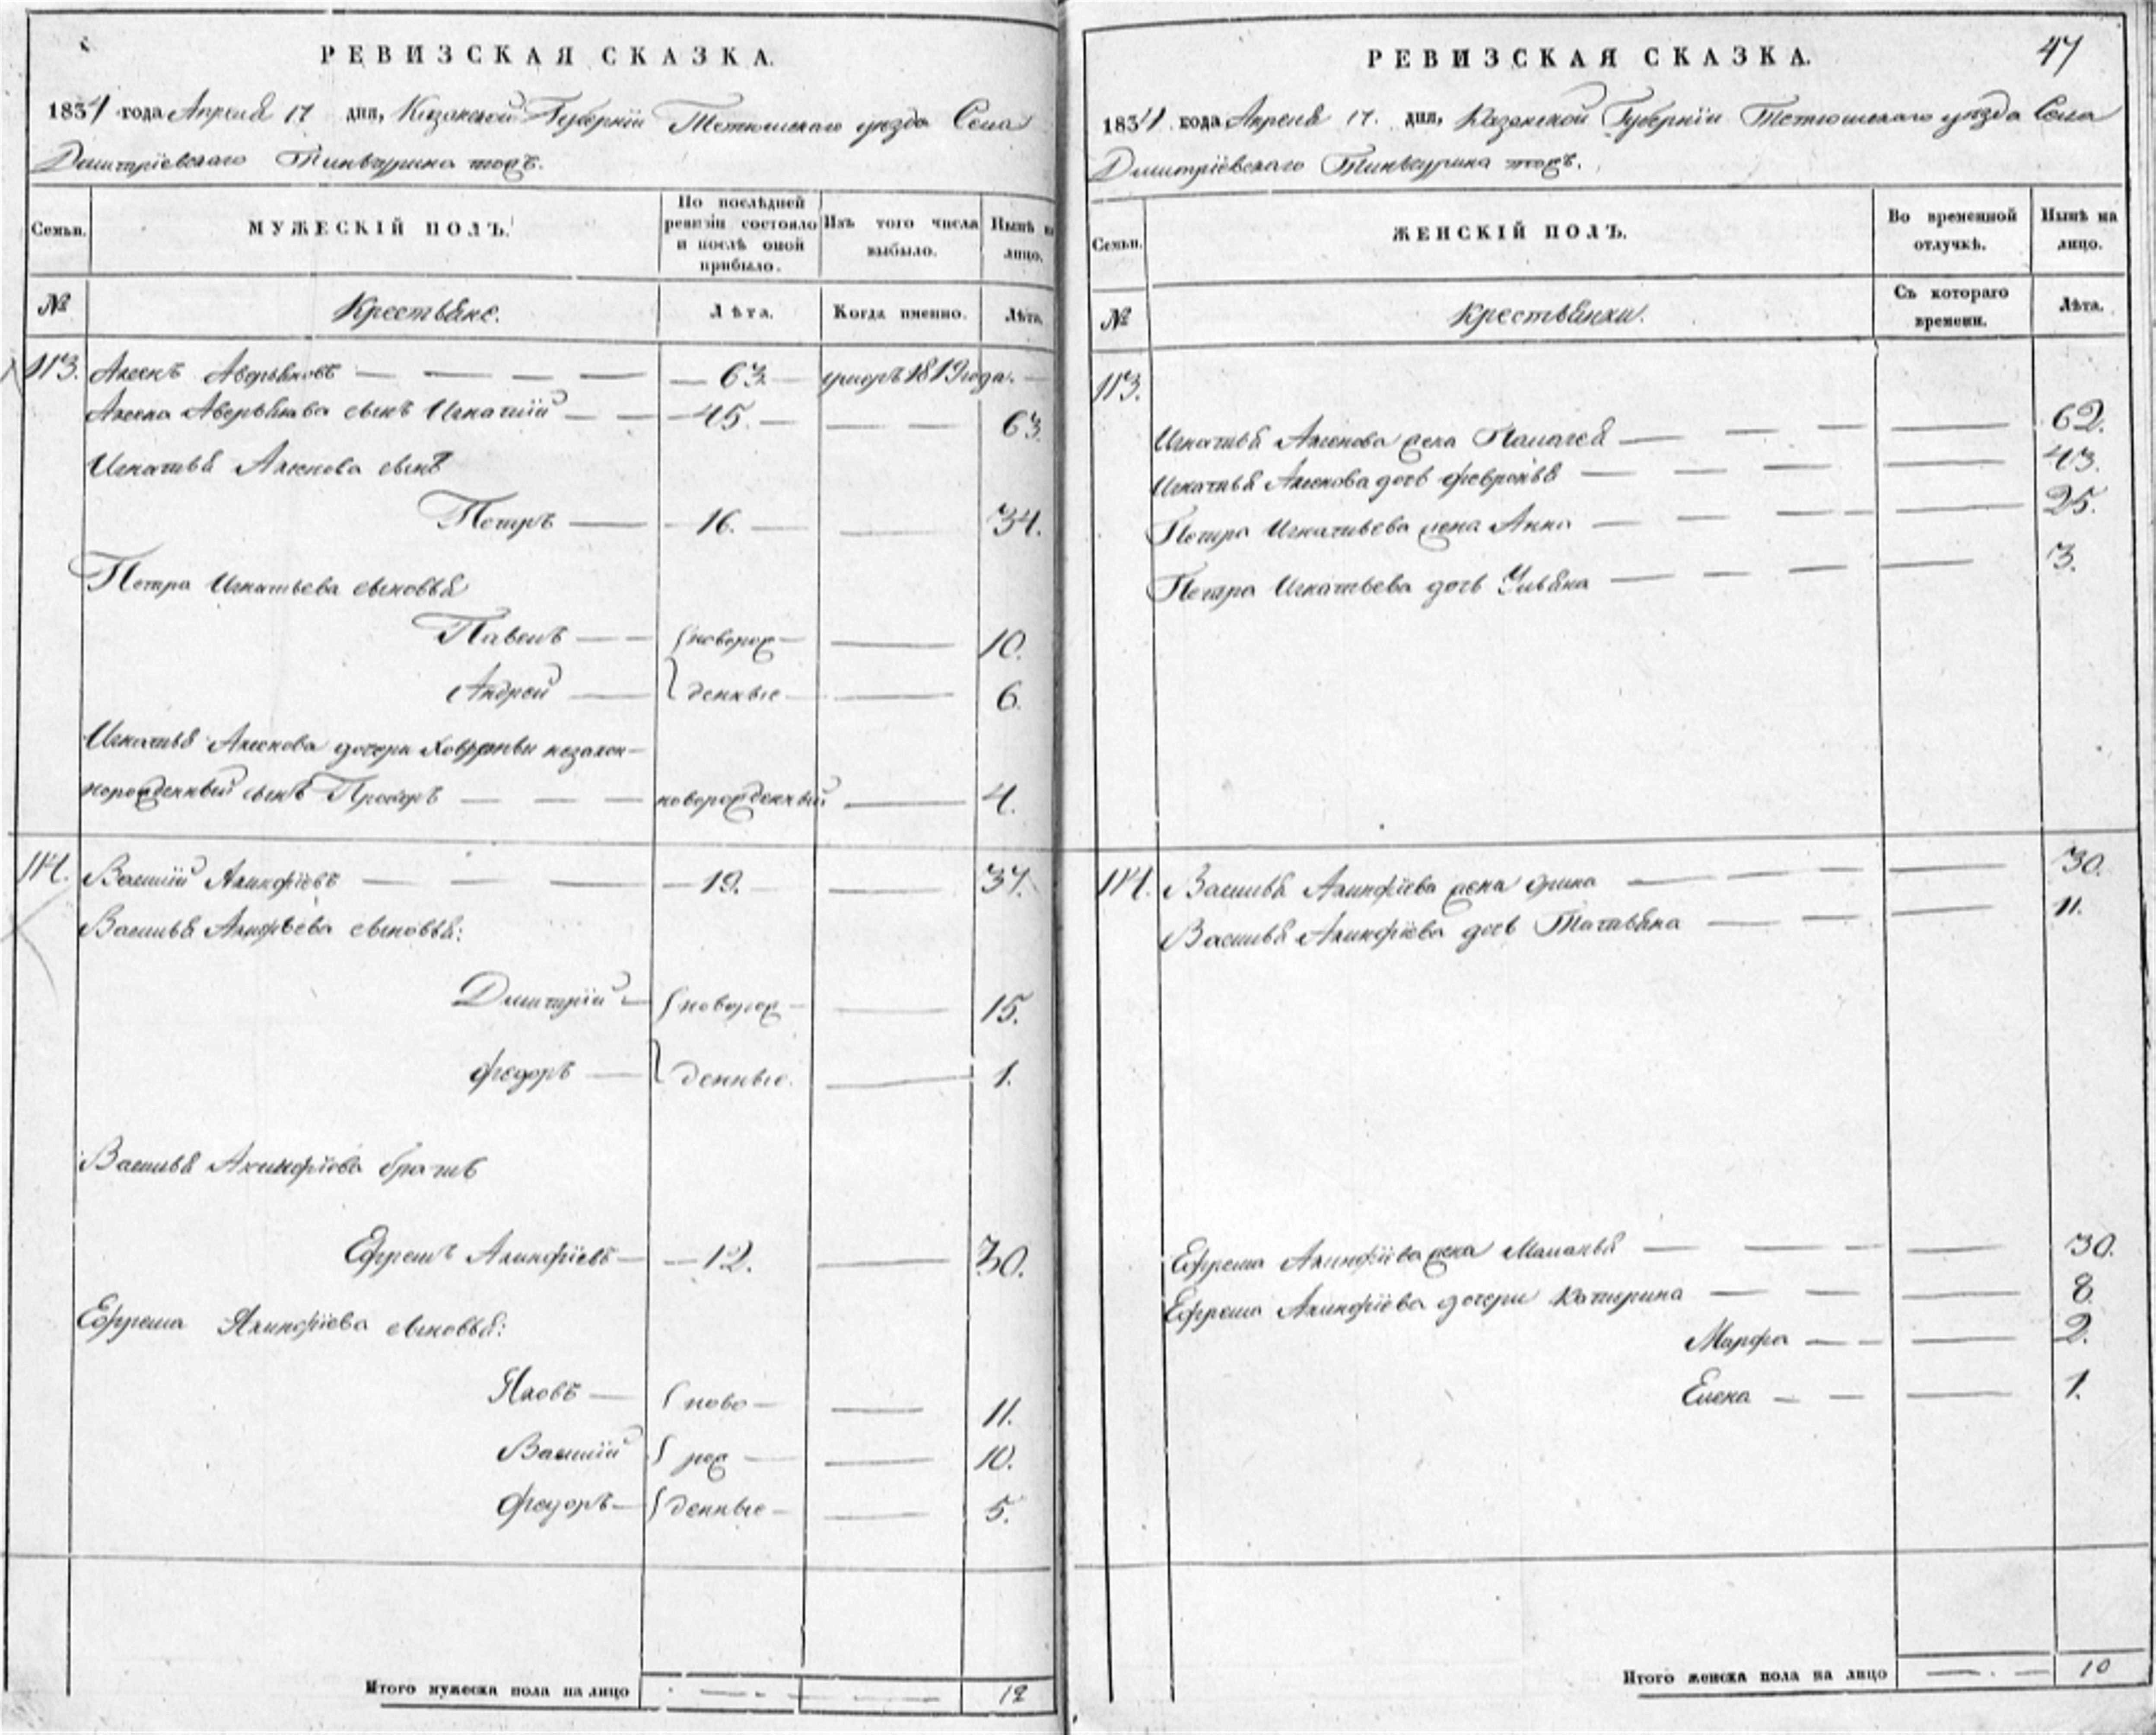 РЕВИЗСКАЯ СКАЗКА.
1834 года Апреля 17 дня, Казанской Губернiи Тетюшскаго уезда Села
Дмитрiевскаго Тинчурина тожъ.
Семьи.
МУЖЕСКIЙ ПОЛЪ.
По послѣдней ревизiи состояло и послѣ оной прибыло.
Изъ того числа выбыло.
Нынѣ на лицо.
№
Крестьяне.
Лѣта.
Когда именно.
Лѣта.
113. Аксенъ Аверьяновъ — 63 — умеръ 1819 года.
Аксена Аверьянова сынъ Игнатiй — 45. — 63.
Игнатья Аксенова сынъ
Петръ — 16. — 34.
Петра Игнатьева сыновья
Павелъ — новорож — 10.
Андрей — денные — 6.
Игнатья Аксенова дочери Хавроньи незакон-
норожденный сынъ — новорожденный — 4.
114. Василiй Акинфiевъ — 19. — 37.
Василья Акинфьева сыновья:
Дмитрiй — новорож — 15.
Федоръ — денные. — 1.
Василья Акинфiева братъ
Ефремъ Акинфiевъ — 12. — 30.
Ефрема Акинфiева сыновья:
Яковъ — ново — 11.
Василiй — рож — 10.
Федоръ — денные — 5.
Итого мужеска пола на лицо — 12
РЕВИЗСКАЯ СКАЗКА.
47
1834 года Апреля 17. дня, Казанской Губернiи Тетюшскаго уезда Села
Дмитрiевскаго Тинчурина тожъ.
Семьи.
ЖЕНСКIЙ ПОЛЪ.
Во временной отлучкѣ.
Нынѣ на лицо.
№
Крестьянки.
Съ котораго времени.
Лѣта.
113.
Игнатья Аксенова жена Палагея — 62.
Игнатья Аксенова дочь Февронья — 43.
Петра Игнатьева жена Анна — 25.
Петра Игнатьева дочь Ульяна — 3.
114. Василья Акинфiева жена Ирина — 30.
Василья Акинфiева дочь Татьяна — 11.
Ефрема Акинфiева жена Маланья — 30.
Ефрема Акинфiева дочери Катерина — 8.
Марфа — 2.
Елена — 1.
Итого женска пола на лицо — 10